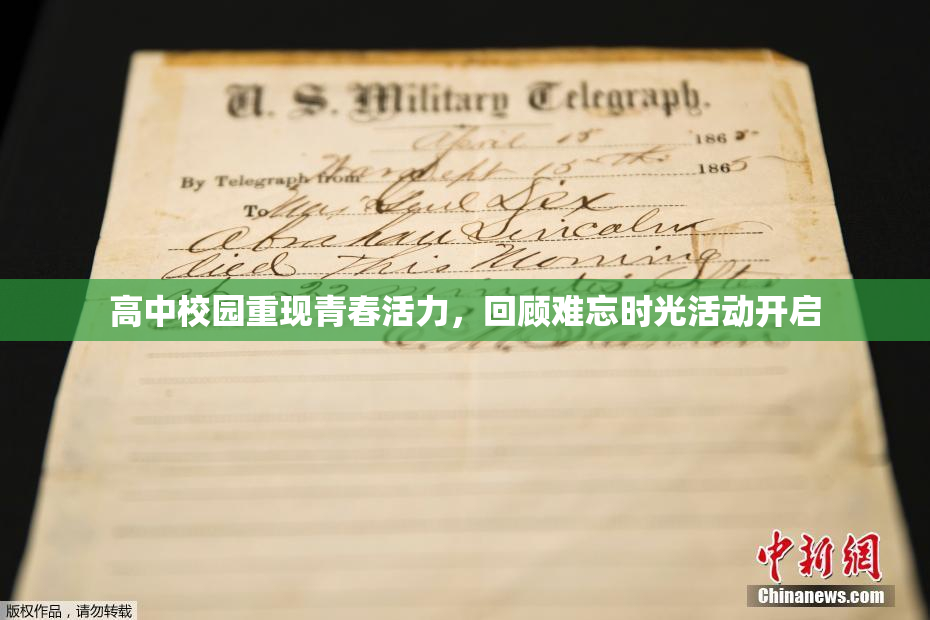 U. S. Military Telegraph.
April 15 1865
By Telegraph from War Dept 15th 1865
To Maj Genl Dix
Abraham Lincoln
died This Morning
at 22 minutes after
高中校园重现青春活力，回顾难忘时光活动开启
E. M. Stanton
中新網
Chinanews.com
版权作品，请勿转载